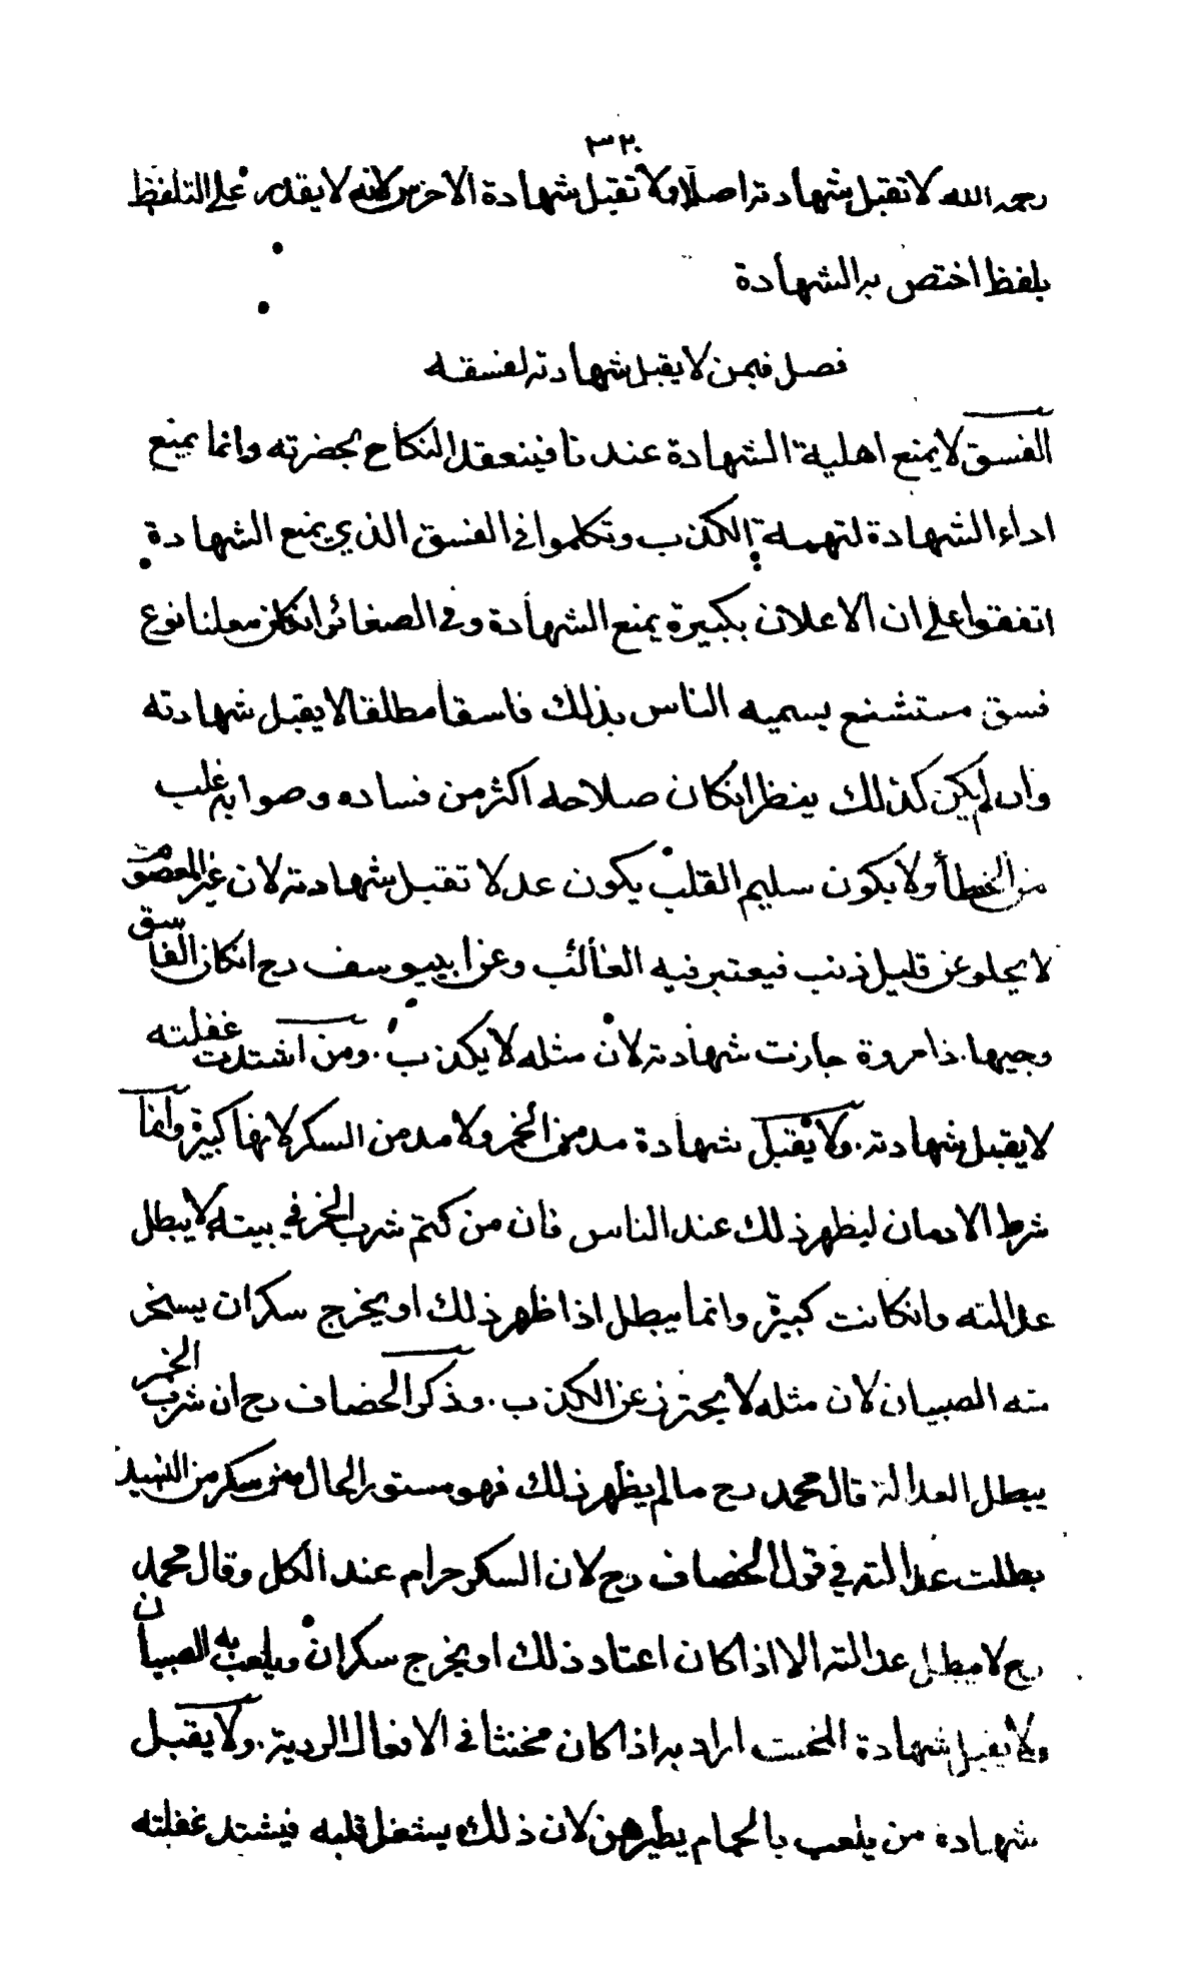 ٣٢٠
رحمه الله لا تقبل شهادته اصلا ولا تقبل شهادة الاخرس لانه لا يقدر على التلفظ
بلفظ اختص به الشهادة
فصل فيمن لا يقبل شهادته لفسقه
الفسق لا يمنع اهلية الشهادة عندنا فينعقد النكاح بحضرته وانما يمنع
اداء الشهادة لتهمة الكذب وتكلموا في الفسق الذي يمنع الشهادة
اتفقوا على ان الاعلان بكبيرة يمنع الشهادة وفي الصغائر انكان معلنا نوع
فسق مستشنع يسميه الناس بذلك فاسقا مطلقا لا يقبل شهادته
وان لم يكن كذلك ينظر انكان صلاحه اكثر من فساده وصوابه غلب
من الخطأ ولا يكون سليم القلب يكون عدلا تقبل شهادته لان غير المعصوم
لا يخلو عن قليل ذنب فيعتبر فيه الغالب وعن ابييوسف رح انكان الفاسق
وجيها ذا مروة جازت شهادته لان مثله لا يكذب . ومن اشتدت غفلته
لا يقبل شهادته . ولا يقبل شهادة مدمن الخمر ولا مدمن السكر لانها كبيرة وانما
شرط الادمان ليظهر ذلك عند الناس فان من كتم شرب الخمر في بيته لا يبطل
عدالته وانكانت كبيرة وانما يبطل اذا ظهر ذلك او يخرج سكران يسخر
منه الصبيان لان مثله لا يحترز عن الكذب . وذكر الخصاف رح ان شرب الخمر
يبطل العدالة قال محمد رح ما لم يظهر ذلك فهو مستور الحال ومن سكر من النبيذ
بطلت عدالته في قول الخصاف رح لان السكر حرام عند الكل وقال محمد
رح لا يبطل عدالته الا اذا كان اعتاد ذلك او يخرج سكران ويلعب به الصبيان
ولا يقبل شهادة المخنث اراد به اذا كان مخنثا في الافعال الردية . ولا يقبل
شهادة من يلعب بالحمام يطيرهن لان ذلك يستغل قلبه فيشتد غفلته